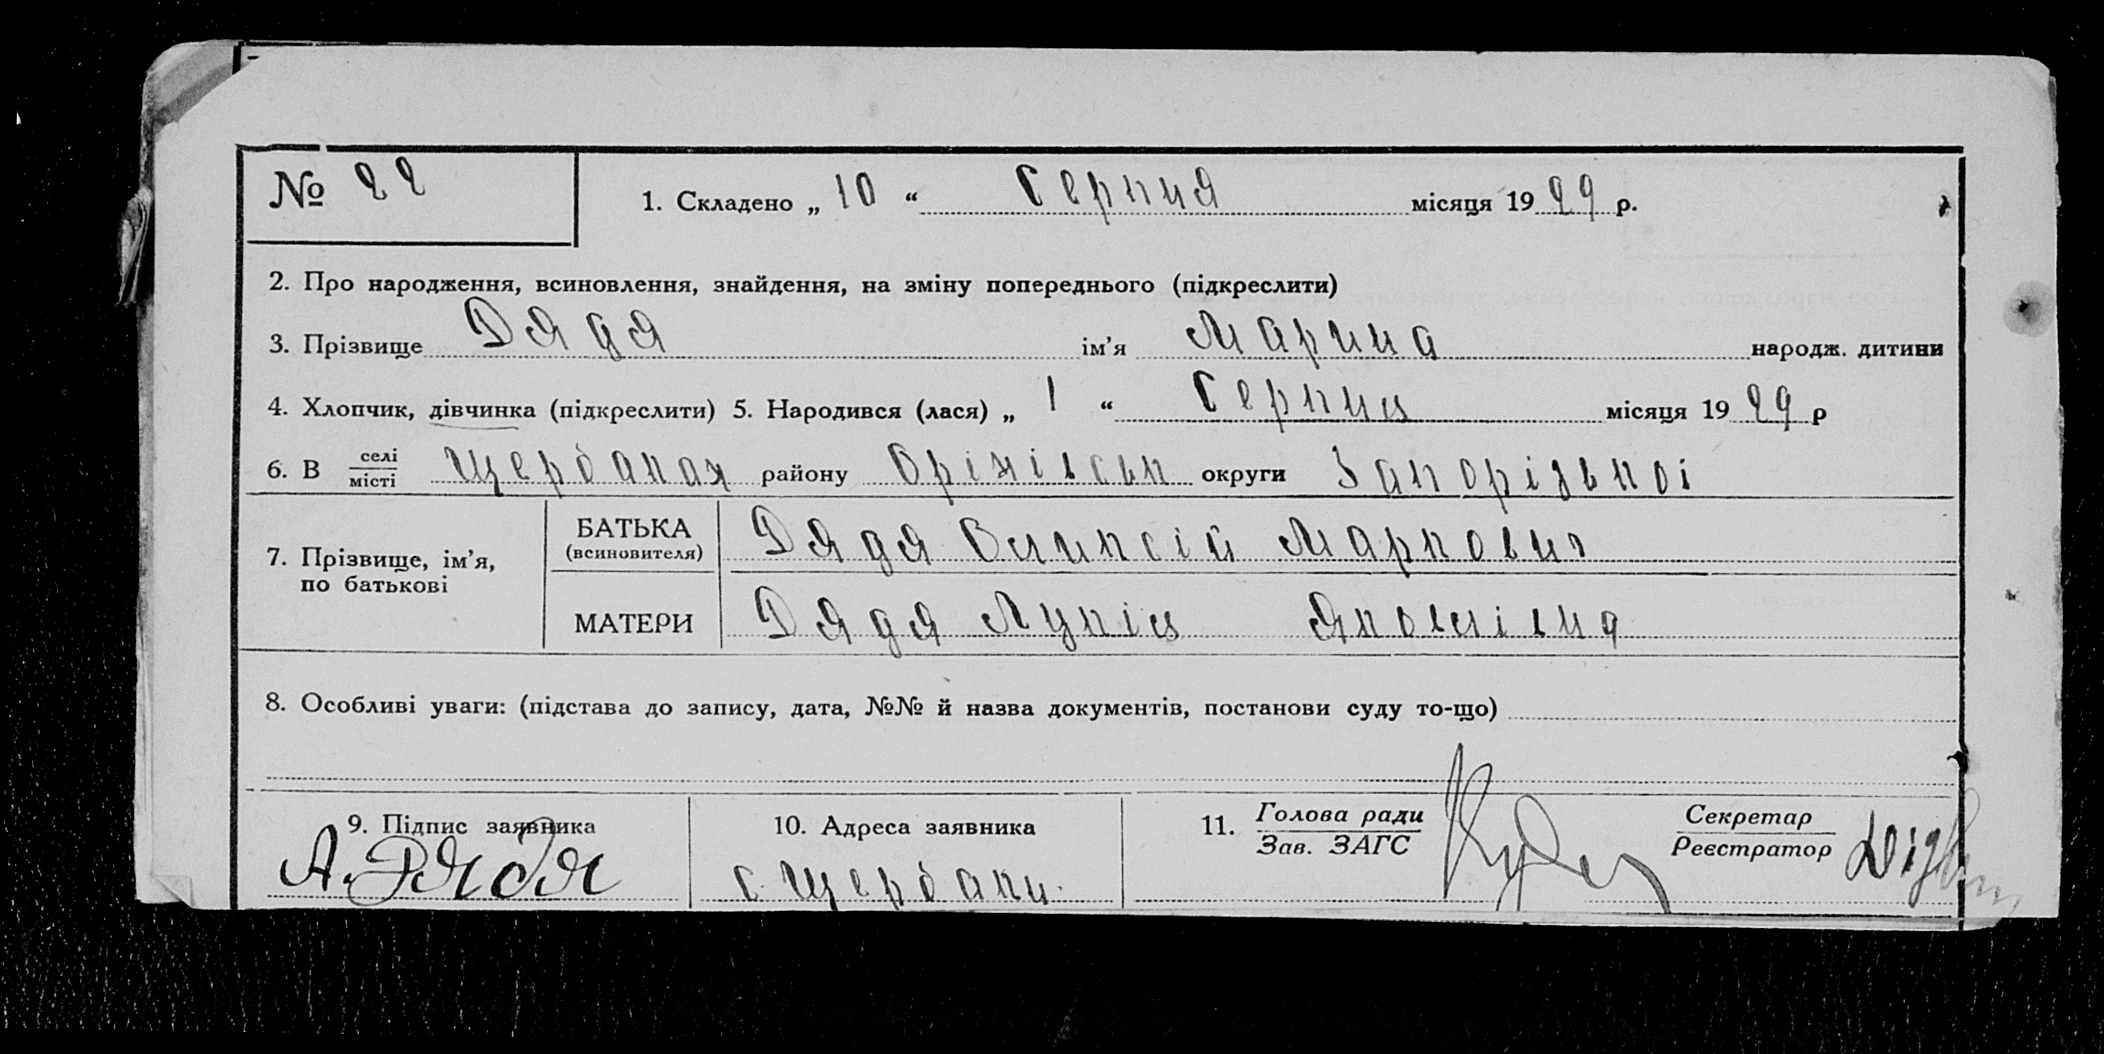 № 22
1. Складено „ 10 “ Серпня місяця 1929 р.
2. Про народження, всиновлення, знайдення, на зміну попереднього (підкреслити)
3. Прізвище Дядя ім’я Марина народж. дитини
4. Хлопчик, дівчинка (підкреслити) 5. Народився (лася) „ 1 “ Серпня місяця 1929 р
6. В селі місті Щербаках району Оріхівськ округи Запорізької
7. Прізвище, ім’я, по батькові
БАТЬКА (всиновителя) Дядя Олексій Маркович
МАТЕРИ Дядя Лукія Яковлівна
8. Особливі уваги: (підстава до запису, дата, №№ й назва документів, постанови суду то-що)
9. Підпис заявника
10. Адреса заявника
11. Голова ради Зав. ЗАГС
Секретар Реєстратор
А. Дядя
с. Щербаки.